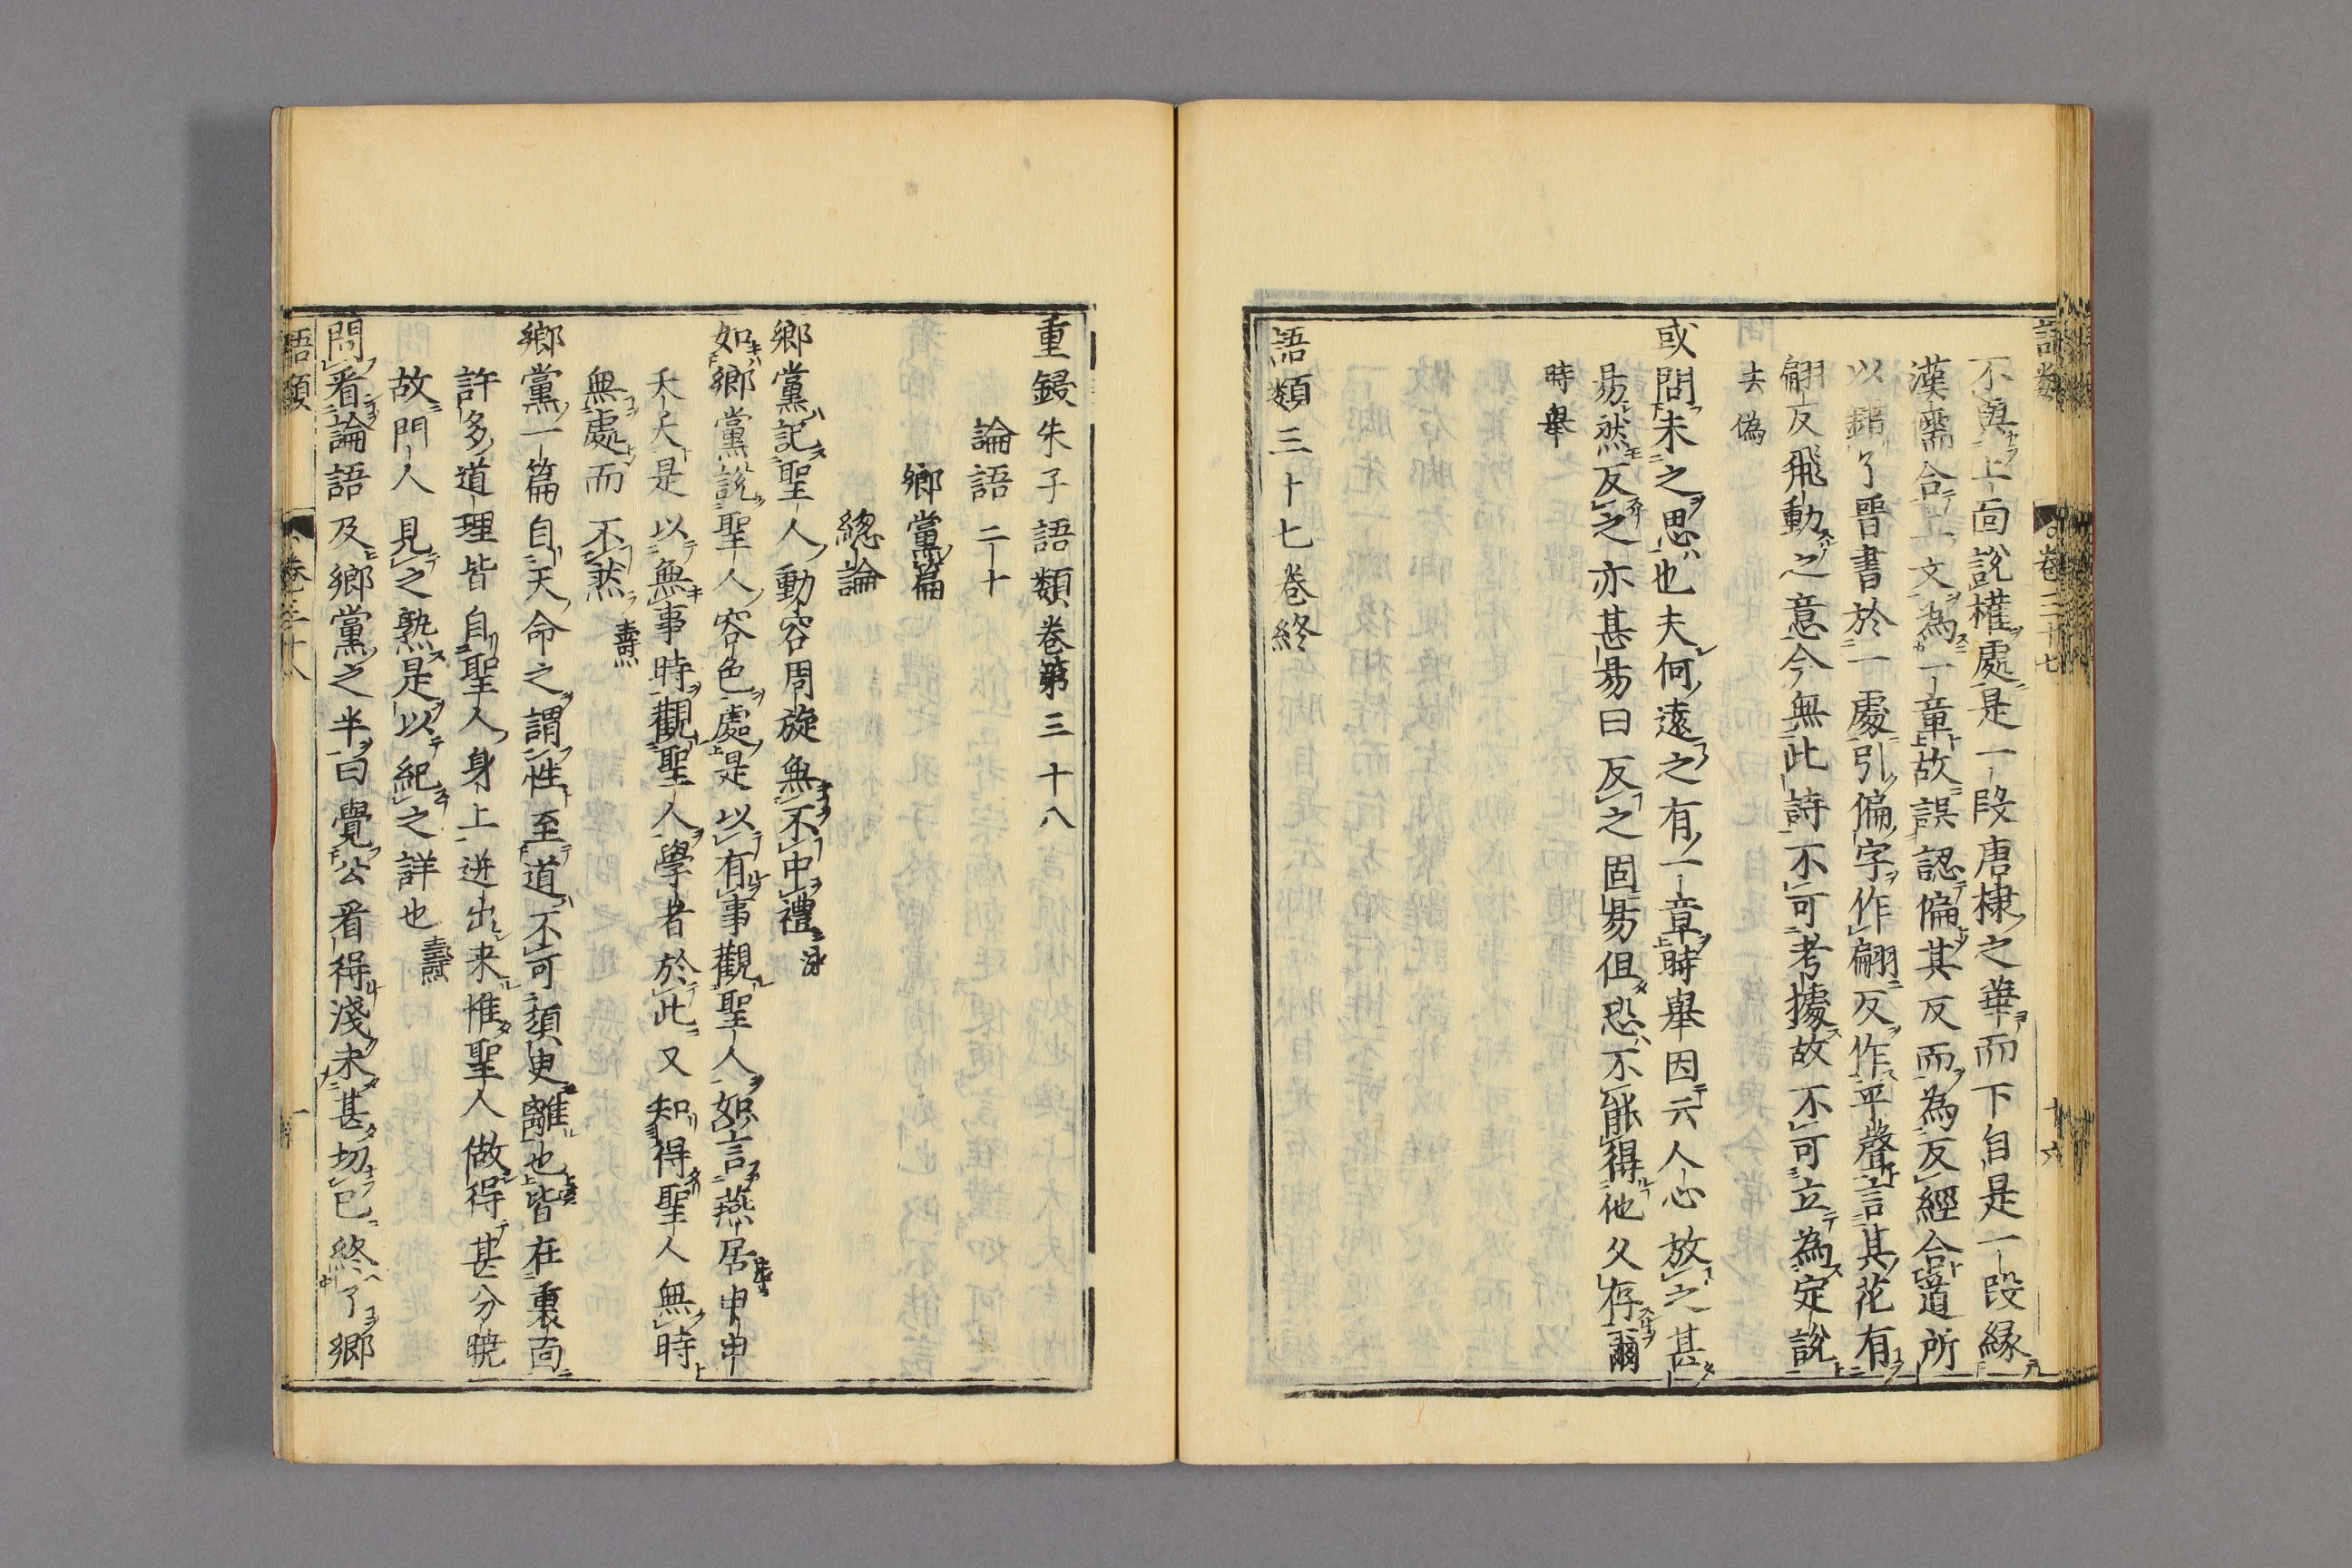 語類　卷三十七　十六
不與上面說權處是一段唐棣之華而下自是一段緣
漢儒合上文為一章故誤認偏其反而為反經合道所
以錯了晉書於一處引偏字作翩反作平聲言其花有
翩反飛動之意今無此詩不可考據故不可立為定說
去偽
或問未之思也夫何遠之有一章時舉因云人心放之甚
易然反之亦甚易曰反之固易但恐不能得他久存爾
時舉
語類三十七卷終
重鋟朱子語類卷第三十八
論語二十
鄉黨篇
總論
鄉黨記聖人動容周旋無不中禮泳
如鄉黨說聖人容色處是以有事觀聖人如言燕居申申
夭夭是以無事時觀聖人學者於此又知得聖人無時
無處而不然燾
鄉黨一篇自天命之謂性至道不可須臾離也皆在裏面
許多道理皆自聖人身上迸出来惟聖人做得甚分曉
故門人見之熟是以紀之詳也燾
問看論語及鄉黨之半曰覺公看得淺未甚切已終了鄉
語類　卷三十八　一